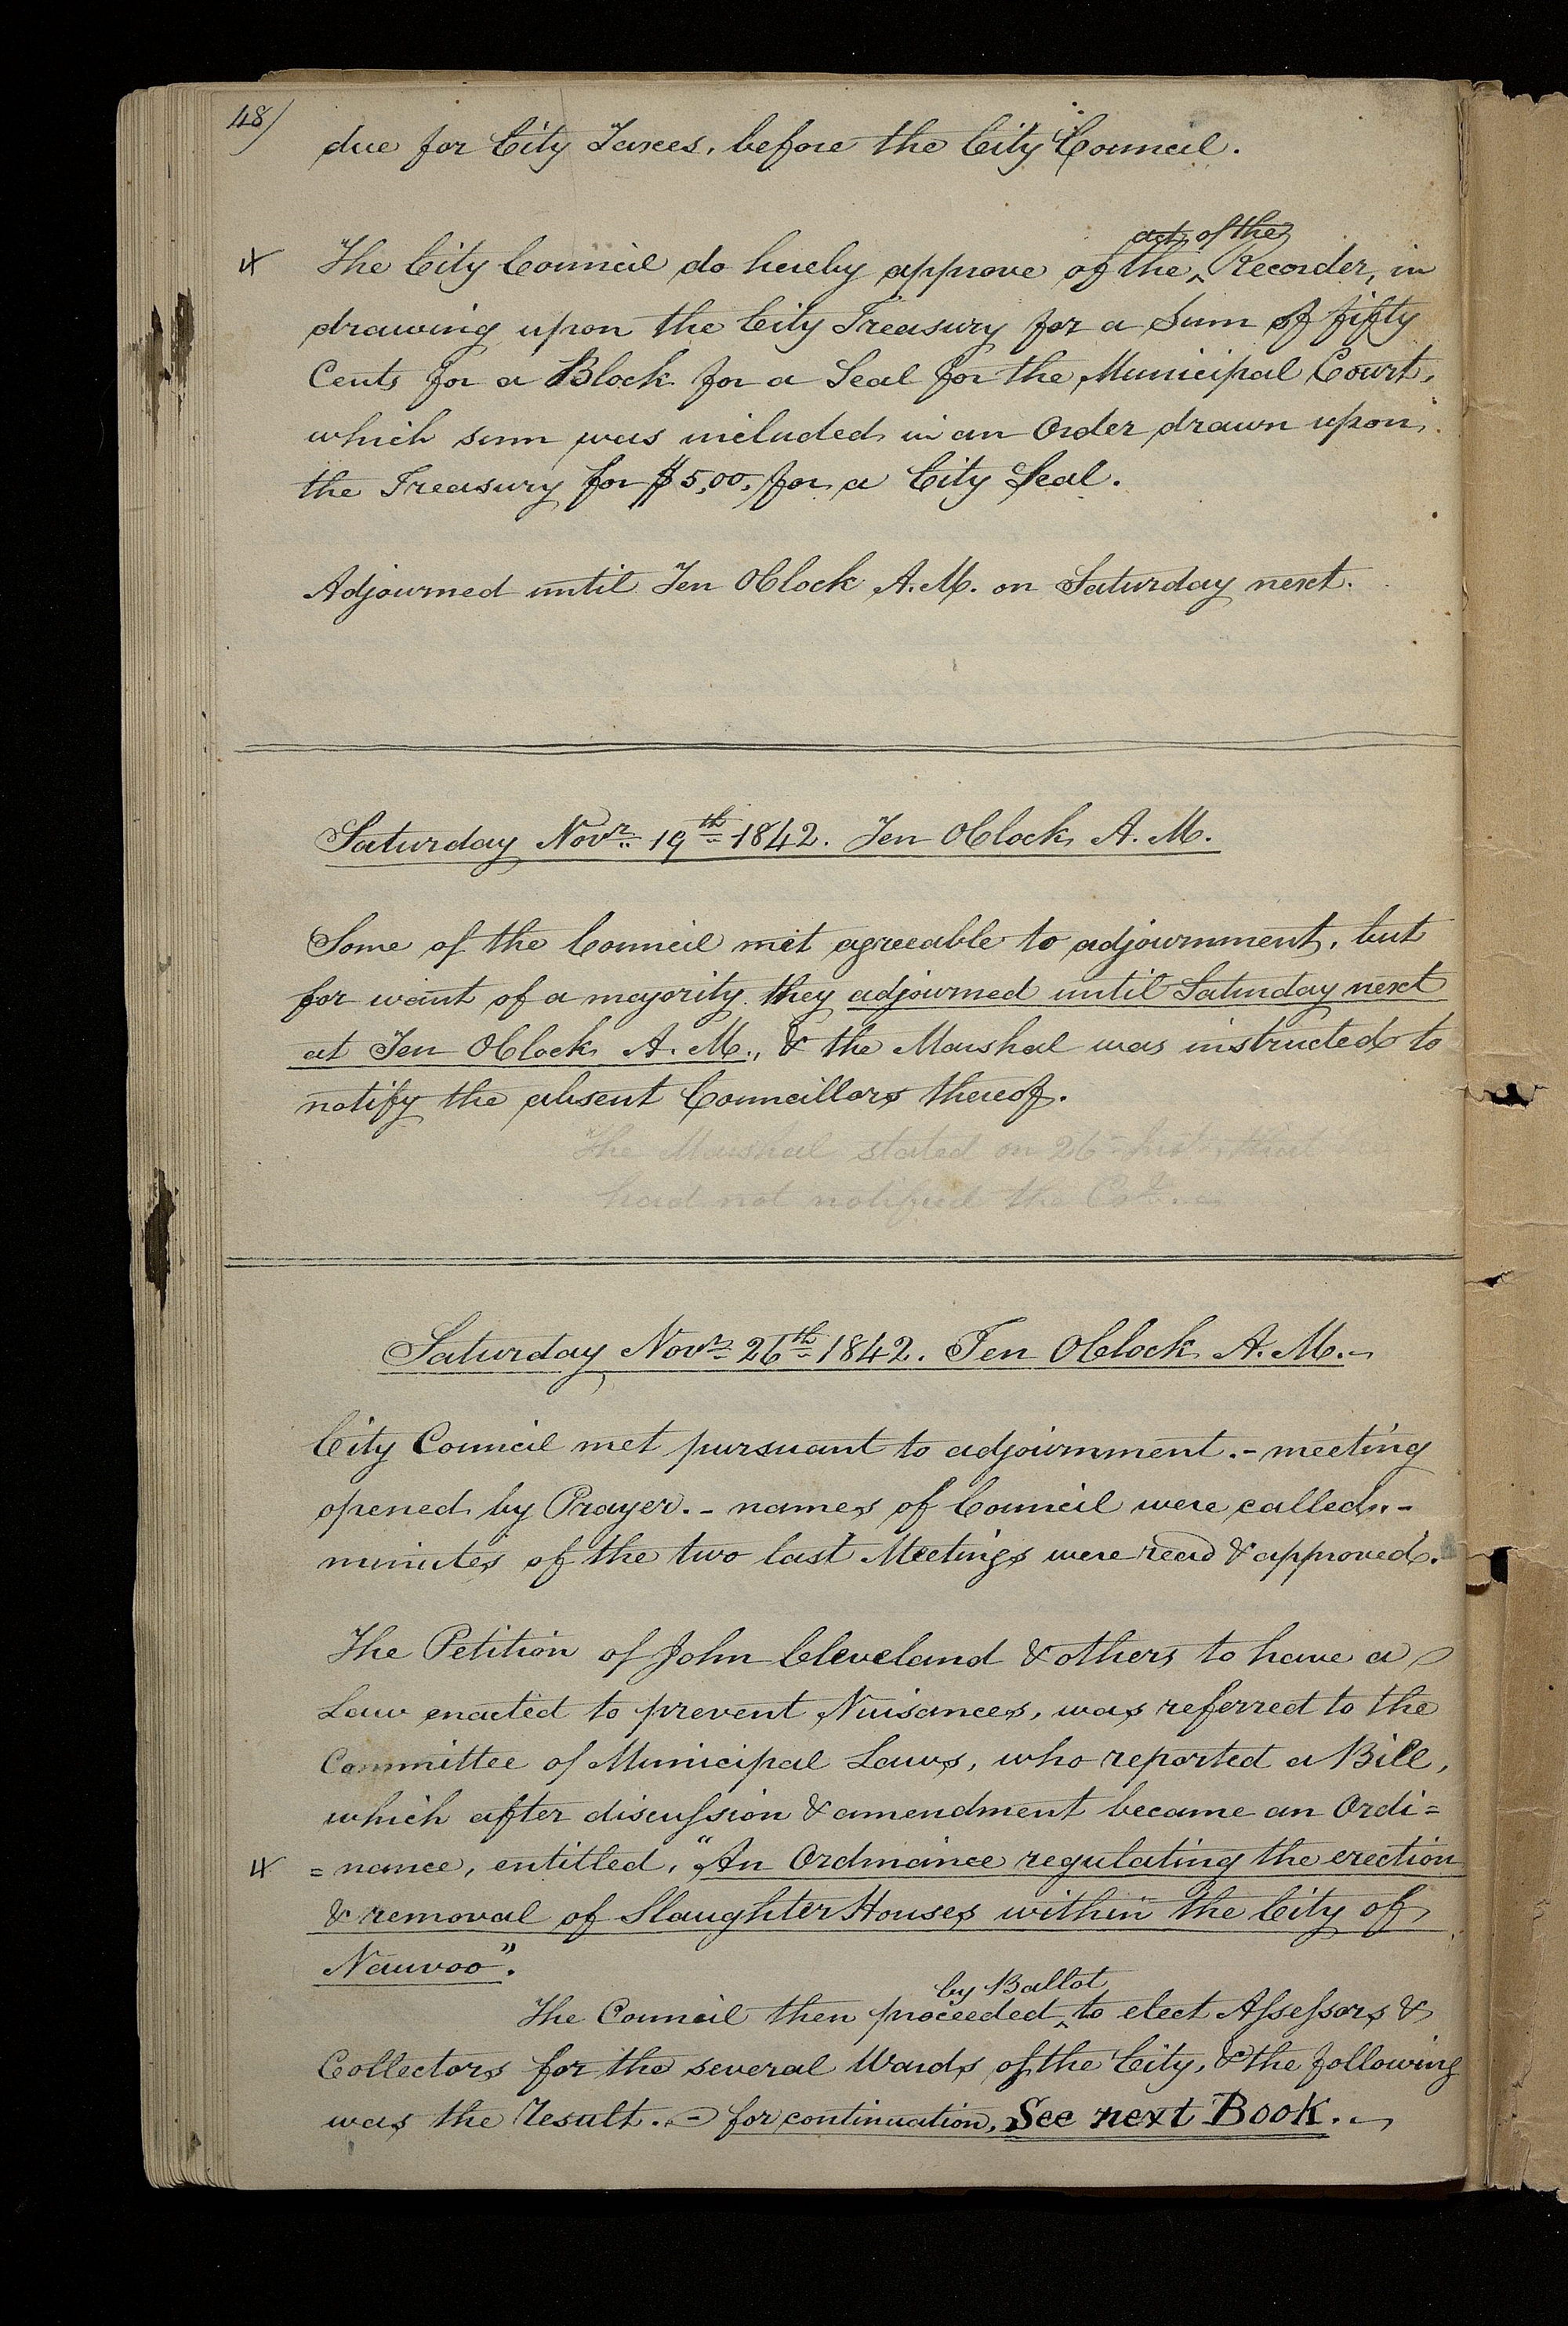 48)
due for City Taxes, before the City Council.
act of the
The City Council do hereby approve of the ^ Recorder, in
drawing upon the City Treasury for a Sum of fifty
Cents for a Block for a Seal for the Municipal Court,
which sum was included in an Order drawn upon
the Treasury for $5,00, for a City Seal.
Adjourned until Ten OClock A.M. on Saturday next.
Saturday Novr. 19th 1842. Ten OClock A. M.
Some of the Council met agreeable to adjournment, but
for want of a majority they adjourned until Saturday next
at Ten OClock A. M., & the Marshal was instructed to
notify the absent Councillors thereof.
The Marshal stated on 26th Inst. that he
had not notified the
Saturday Novr. 26th 1842. Ten OClock A. M.-
City Council met pursuant to adjournment.- meeting
opened by Prayer.- names of Council were called.-
minutes of the two last Meetings were read & approved.
The Petition of John Cleveland & others to have a
Law enacted to prevent Nuisances, was referred to the
Committee of Municipal Laws, who reported a Bill,
which after discussion & amendment became an Ordi=
=nance, entitled, "An Ordinance regulating the erection
& removal of Slaughter Houses within the City of
Nauvoo".
by Ballot
The Council then proceeded ^ to elect Assessors &
Collectors for the several Wards of the City, & the following
was the Result. - for continuation, See next Book.-